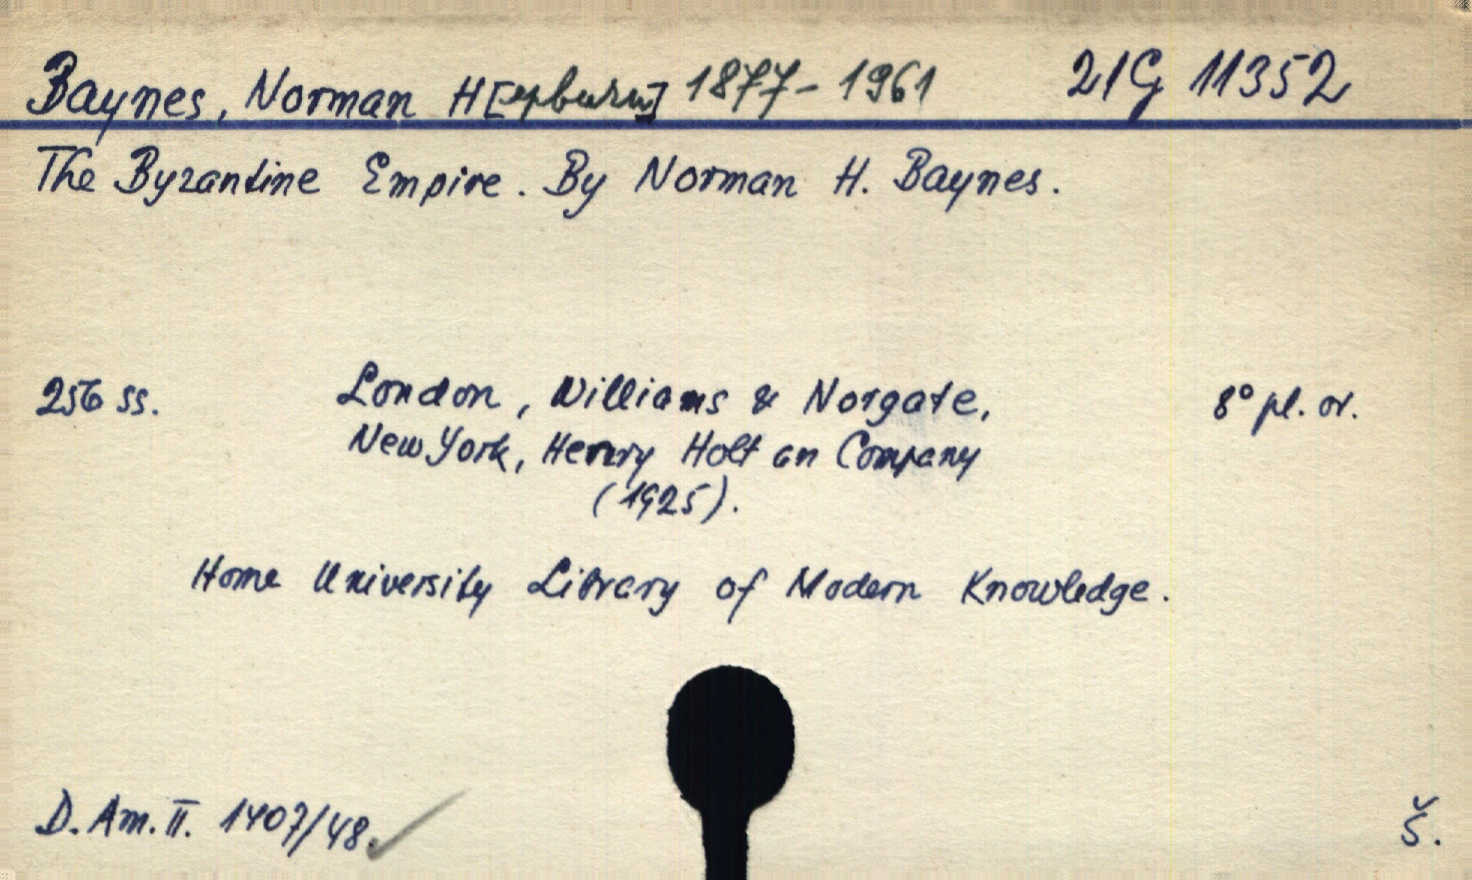 Baynes, Norman H[epburn] 1877-1961 21G 11352
The Byzantine Empire. By Norman H. Baynes.
256 ss. London, Williams & Norgate, 8° pl. or.
New York, Henry Holt an Company
(1925).
Home University Library of Modern Knowledge.
D. Am. II. 1407/48. Š.